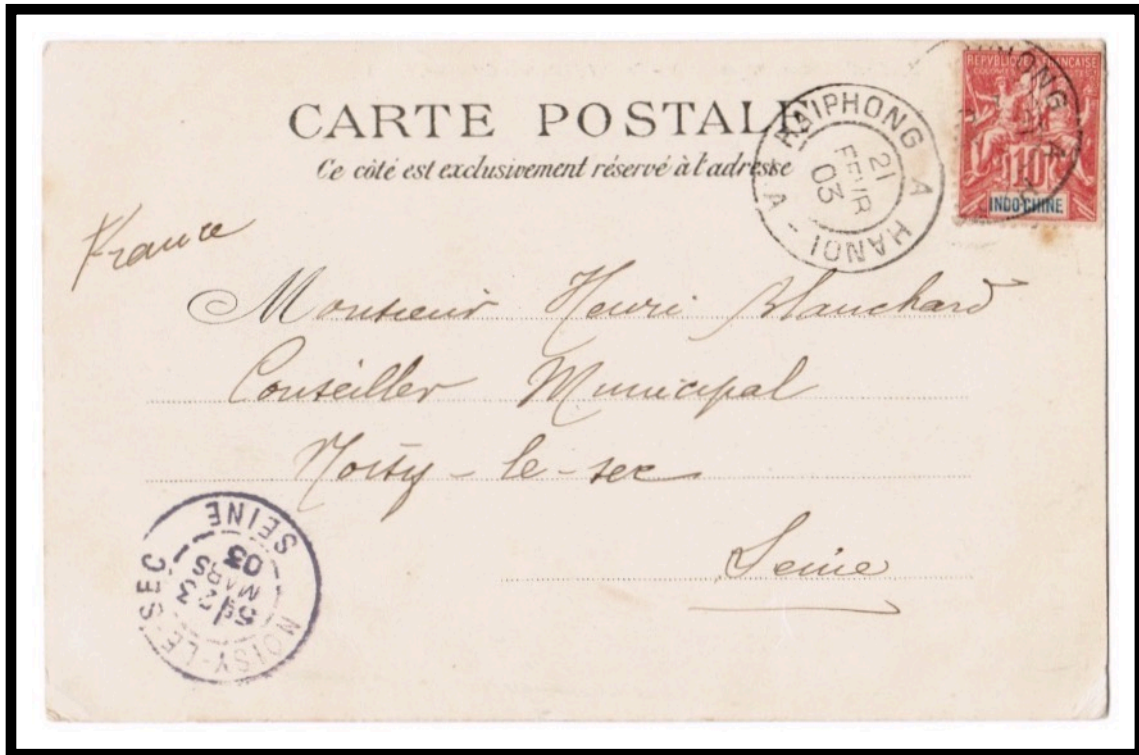 CARTE POSTALE
Ce côté est exclusivement réservé à l'adresse
HAIPHONG A HANOI - A
21
FEVR
03
REPUBLIQUE FRANÇAISE
10
INDO-CHINE
France
Monsieur Henri Blanchard
Conseiller Municipal
Noisy-le-sec
Seine
NOISY-LE-SEC
SEINE
5E
23
MARS
03